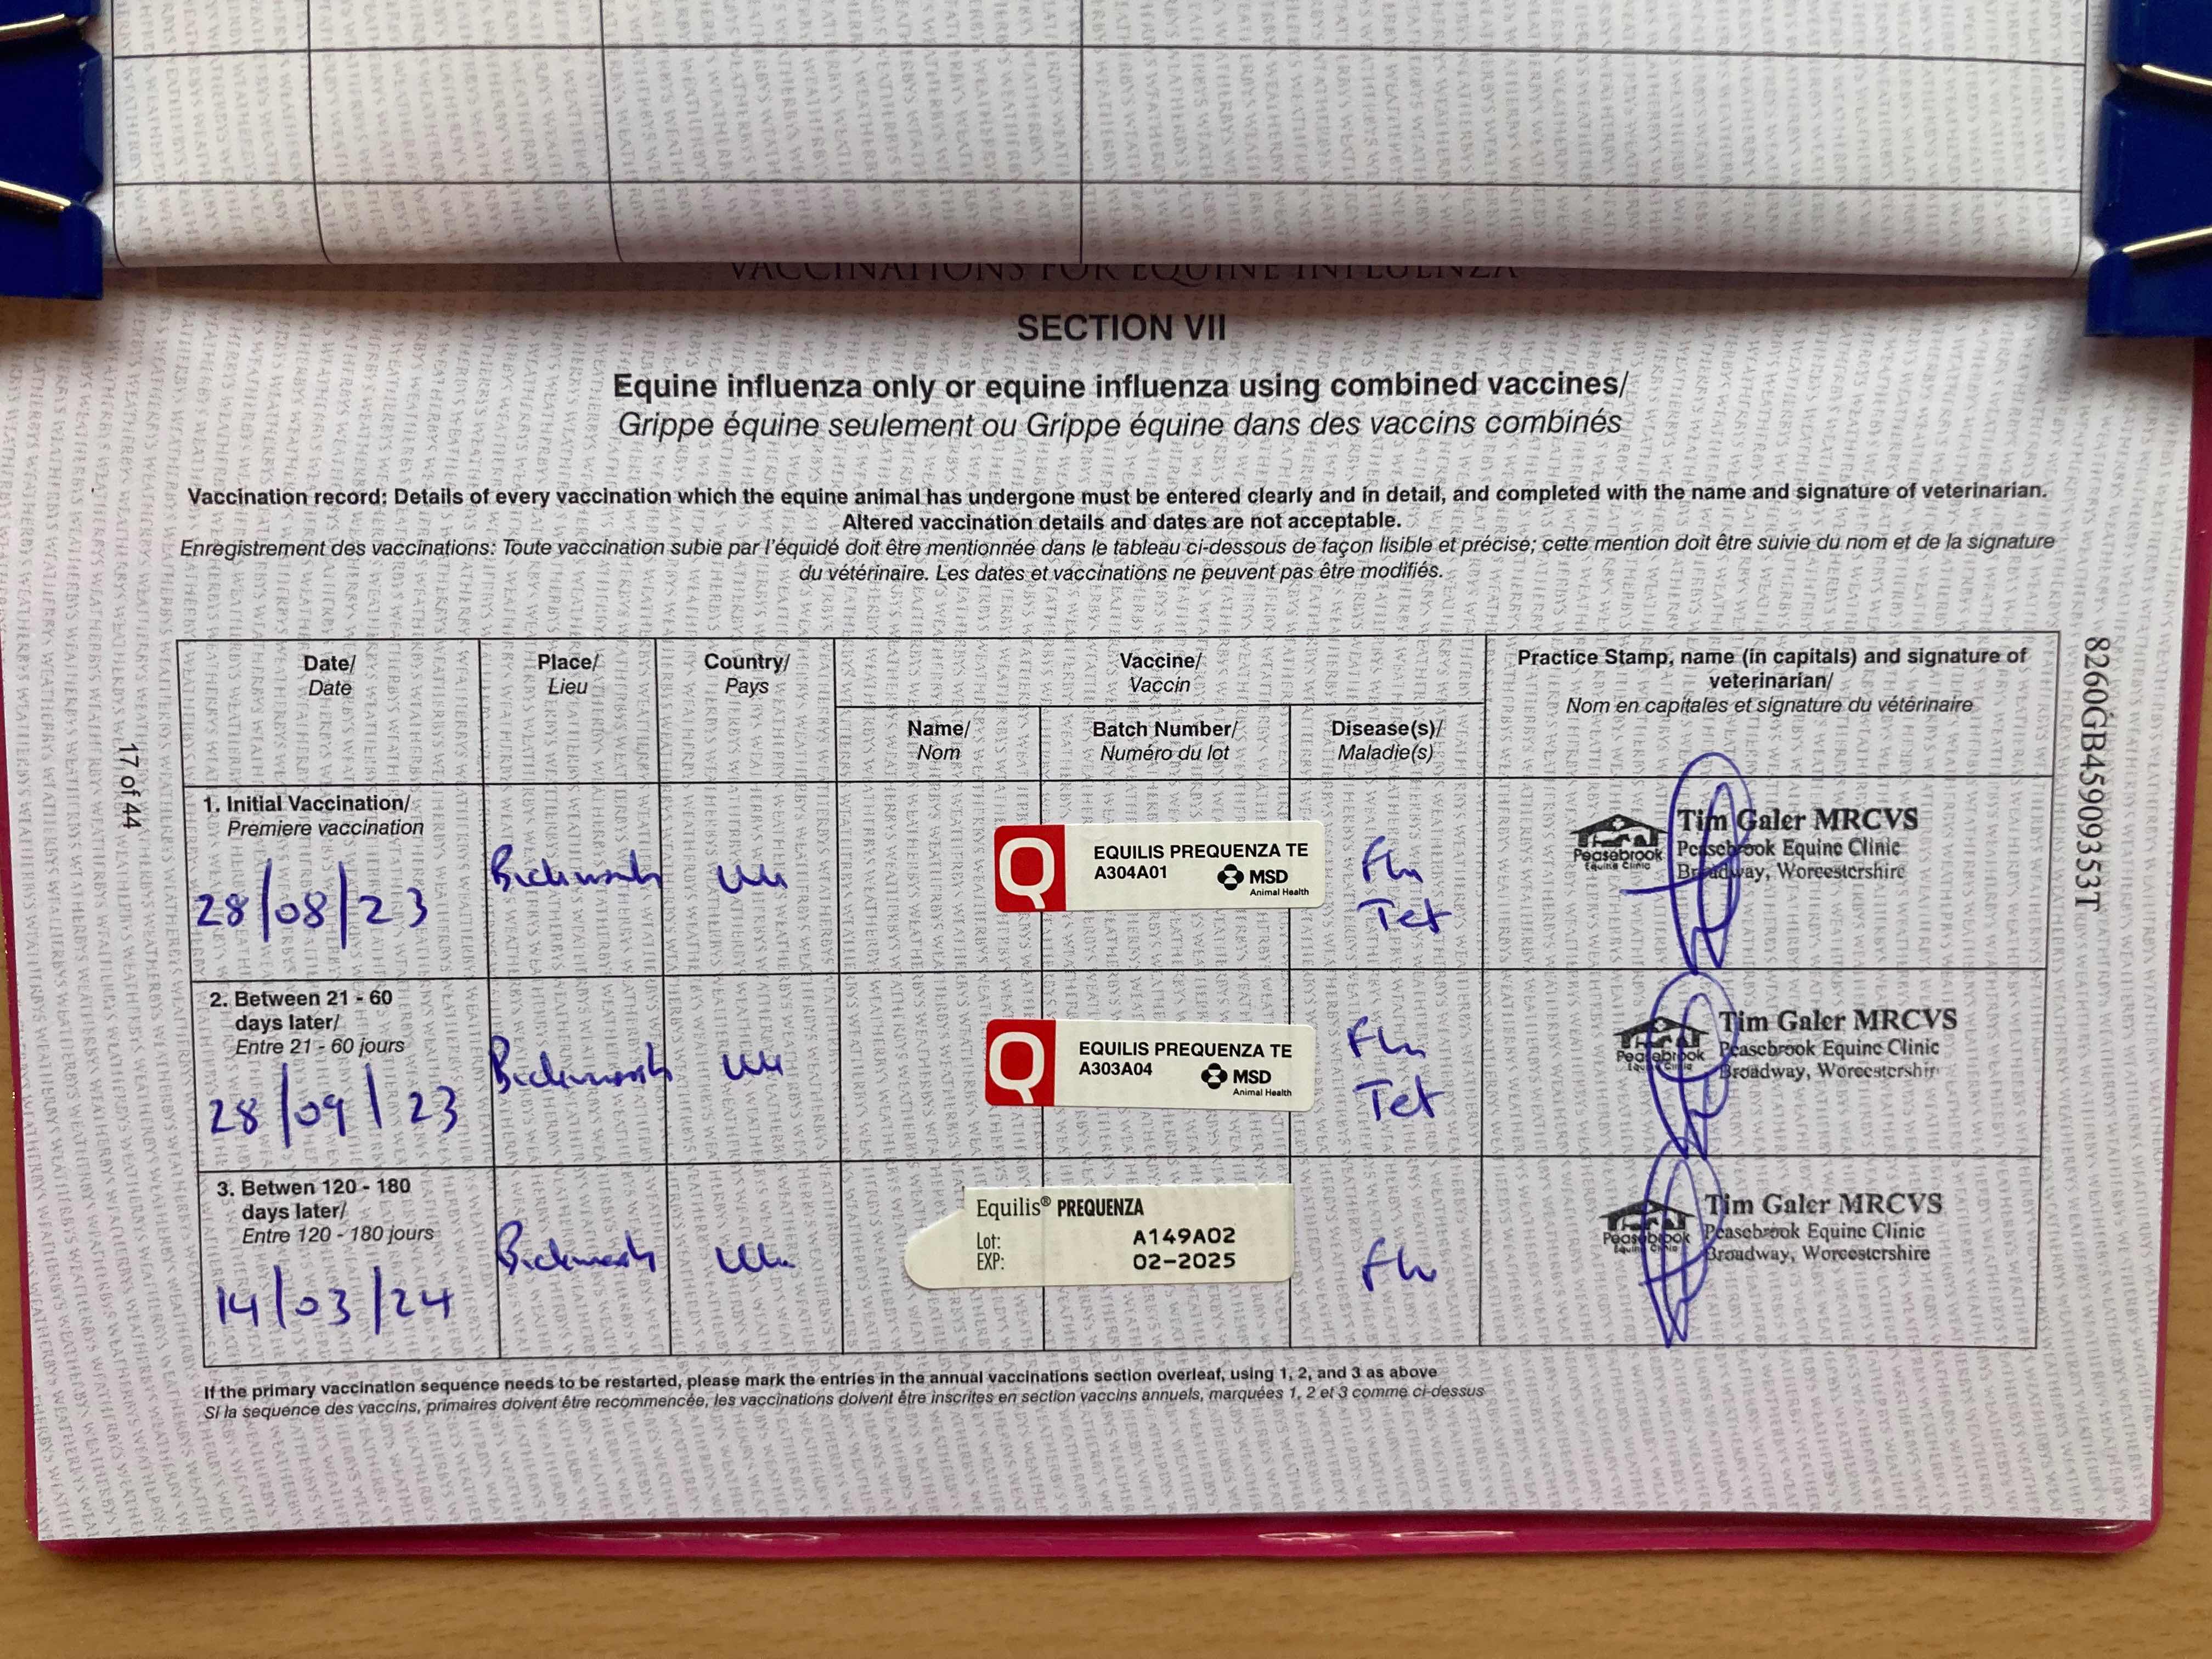 VACCINATIONS FOR EQUINE INFLUENZA
SECTION VII
Equine influenza only or equine influenza using combined vaccines/
Grippe équine seulement ou Grippe équine dans des vaccins combinés
Vaccination record: Details of every vaccination which the equine animal has undergone must be entered clearly and in detail, and completed with the name and signature of veterinarian.
Altered vaccination details and dates are not acceptable.
Enregistrement des vaccinations: Toute vaccination subie par l'équidé doit être mentionnée dans le tableau ci-dessous de façon lisible et précise; cette mention doit être suivie du nom et de la signature
du vétérinaire. Les dates et vaccinations ne peuvent pas être modifiés.
Date/
Date
Place/
Lieu
Country/
Pays
Vaccine/
Vaccin
Name/
Nom
Batch Number/
Numéro du lot
Disease(s)/
Maladie(s)
Practice Stamp, name (in capitals) and signature of
veterinarian/
Nom en capitales et signature du vétérinaire
1. Initial Vaccination/
Premiere vaccination
28/08/23
UK
Q
EQUILIS PREQUENZA TE
A304A01
MSD
Animal Health
Flu
Tet
Peasebrook
Equine Clinic
Tim Galer MRCVS
Peasebrook Equine Clinic
Broadway, Worcestershire
2. Between 21 - 60
days later/
Entre 21 - 60 jours
28/09/23
UK
Q
EQUILIS PREQUENZA TE
A303A04
MSD
Animal Health
Flu
Tet
Peasebrook
Equine Clinic
Tim Galer MRCVS
Peasebrook Equine Clinic
Broadway, Worcestershir
3. Betwen 120 - 180
days later/
Entre 120 - 180 jours
14/03/24
UK
Equilis® PREQUENZA
Lot: A149A02
EXP: 02-2025
Flu
Peasebrook
Equine Clinic
Tim Galer MRCVS
Peasebrook Equine Clinic
Broadway, Worcestershire
If the primary vaccination sequence needs to be restarted, please mark the entries in the annual vaccinations section overleaf, using 1, 2, and 3 as above
Si la sequence des vaccins, primaires doivent être recommencée, les vaccinations doivent être inscrites en section vaccins annuels, marquées 1, 2 et 3 comme ci-dessus
17 of 44
8260GB45909353T
WEATHERBYS